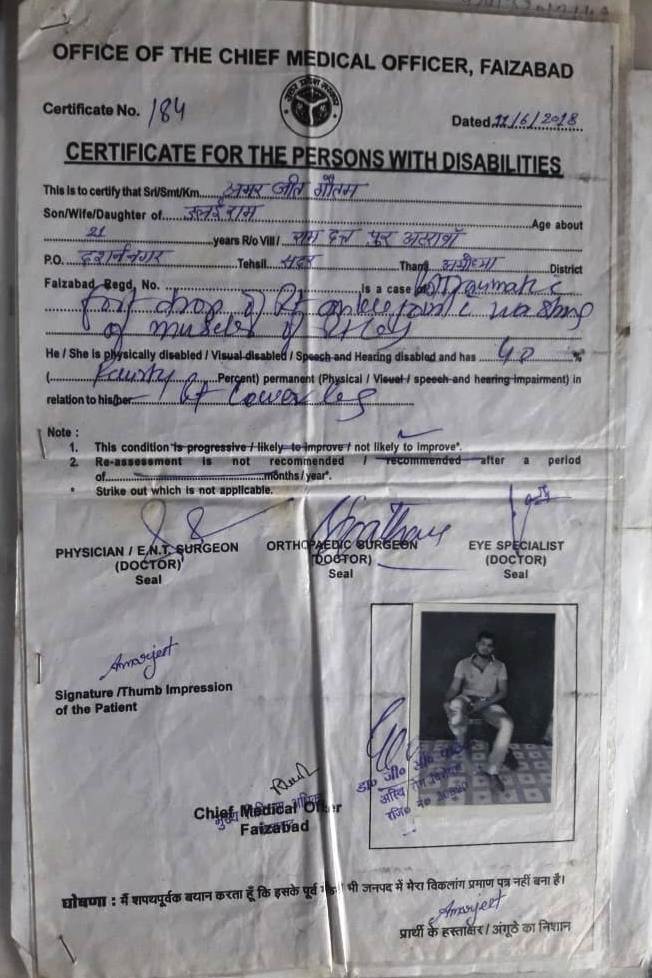 OFFICE OF THE CHIEF MEDICAL OFFICER, FAIZABAD
Certificate No. 184
Dated 11/6/2018
CERTIFICATE FOR THE PERSONS WITH DISABILITIES
This is to certify that Sri/Smt/Km. अमर जीत गौतम
Son/Wife/Daughter of राम Age about
21 years R/o Vill/ राम दत्त पुर
P.O. दर्शननगर Tehsil सदर Thana अयोध्या District
Faizabad Regd, No. is a case of Traumatic
foot drop of Rt ankle joint c wasting
of muscles of Rt leg
He / She is physically disabled / Visual disabled / Speech and Hearing disabled and has 40 %
( Fourty Percent) permanent (Physical / Visual / speech and hearing impairment) in
relation to his/her Rt Lower leg
Note :
1. This condition is progressive / likely to improve / not likely to improve*.
2. Re-assessment is not recommended / recommended after a period
of months / year*.
* Strike out which is not applicable.
PHYSICIAN / E.N.T. SURGEON ORTHOPAEDIC SURGEON EYE SPECIALIST
(DOCTOR) (DOCTOR) (DOCTOR)
Seal Seal Seal
Amarjeet
Signature /Thumb Impression
of the Patient
डा० जी०
अस्थि रोग
रजि० नं०
Chief Medical Officer
मुख्य
Faizabad
घोषणा : मैं शपथपूर्वक बयान करता हूँ कि इसके पूर्व भी जनपद में मेरा विकलांग प्रमाण पत्र नहीं बना है।
Amarjeet
प्रार्थी के हस्ताक्षर / अंगूठे का निशान